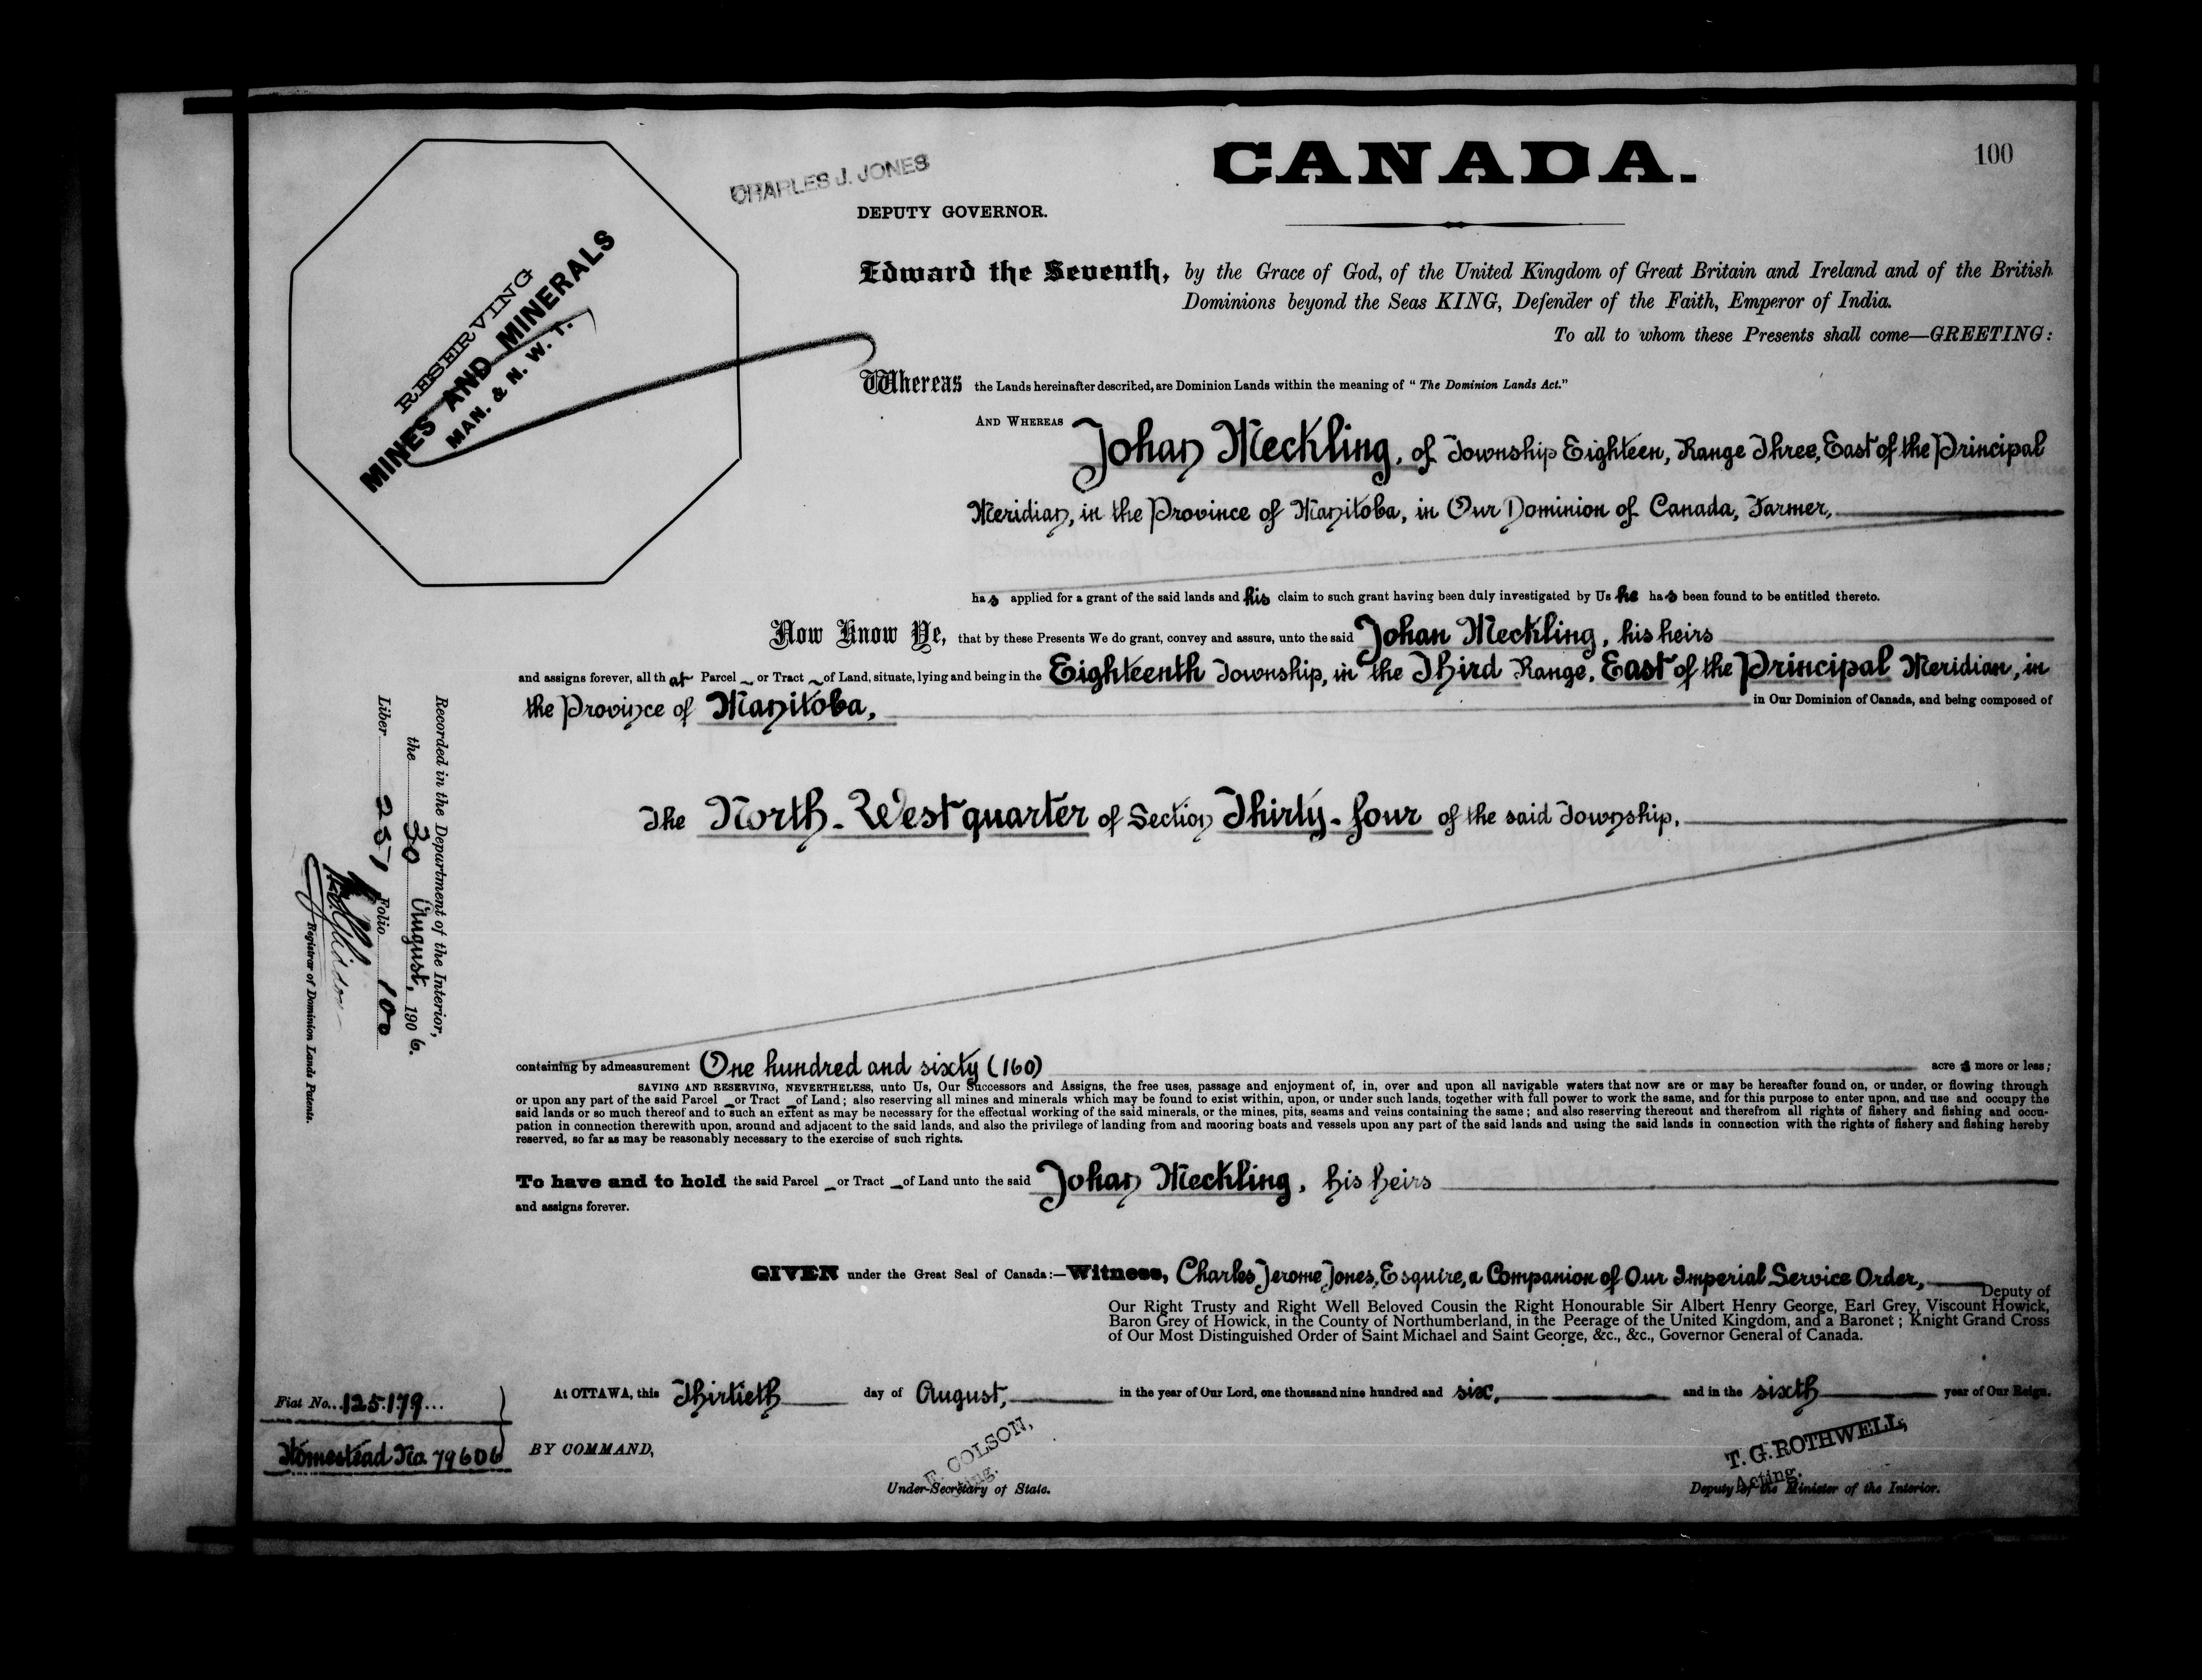 100
CANADA.
CHARLES J. JONES
DEPUTY GOVERNOR.
RESERVING
MINES AND MINERALS
MAN. & N. W. T.
Edward the Seventh, by the Grace of God, of the United Kingdom of Great Britain and Ireland and of the British
Dominions beyond the Seas KING, Defender of the Faith, Emperor of India.
To all to whom these Presents shall come—GREETING:
Whereas the Lands hereinafter described, are Dominion Lands within the meaning of "The Dominion Lands Act."
AND WHEREAS Johan Meckling, of Township Eighteen, Range Three, East of the Principal
Meridian, in the Province of Manitoba, in Our Dominion of Canada, Farmer,
has applied for a grant of the said lands and his claim to such grant having been duly investigated by Us he has been found to be entitled thereto.
Now Know Ye, that by these Presents We do grant, convey and assure, unto the said Johan Meckling, his heirs
and assigns forever, all that Parcel or Tract of Land, situate, lying and being in the Eighteenth Township, in the Third Range, East of the Principal Meridian, in
the Province of Manitoba, in Our Dominion of Canada, and being composed of
The North-West quarter of Section Thirty-four of the said Township.
containing by admeasurement One hundred and sixty (160) acres more or less;
SAVING AND RESERVING, NEVERTHELESS, unto Us, Our Successors and Assigns, the free uses, passage and enjoyment of, in, over and upon all navigable waters that now are or may be hereafter found on, or under, or flowing through
or upon any part of the said Parcel or Tract of Land; also reserving all mines and minerals which may be found to exist within, upon, or under such lands, together with full power to work the same, and for this purpose to enter upon, and use and occupy the
said lands or so much thereof and to such an extent as may be necessary for the effectual working of the said minerals, or the mines, pits, seams and veins containing the same; and also reserving thereout and therefrom all rights of fishery and fishing and occu-
pation in connection therewith upon, around and adjacent to the said lands, and also the privilege of landing from and mooring boats and vessels upon any part of the said lands and using the said lands in connection with the rights of fishery and fishing hereby
reserved, so far as may be reasonably necessary to the exercise of such rights.
To have and to hold the said Parcel or Tract of Land unto the said Johan Meckling, his heirs
and assigns forever.
GIVEN under the Great Seal of Canada:—Witness, Charles Jerome Jones, Esquire, a Companion of Our Imperial Service Order, Deputy of
Our Right Trusty and Right Well Beloved Cousin the Right Honourable Sir Albert Henry George, Earl Grey, Viscount Howick,
Baron Grey of Howick, in the County of Northumberland, in the Peerage of the United Kingdom, and a Baronet; Knight Grand Cross
of Our Most Distinguished Order of Saint Michael and Saint George, &c., &c., Governor General of Canada.
At OTTAWA, this Thirtieth day of August, in the year of Our Lord, one thousand nine hundred and six, and in the sixth year of Our Reign.
BY COMMAND,
COLSON,
Under-Secretary of State.
T. G. ROTHWELL,
Acting.
Deputy of the Minister of the Interior.
Fiat No. 125179
Homestead No. 79606
Recorded in the Department of the Interior,
the 30 August, 1906.
Liber 251 Folio 100
Registrar of Dominion Lands Patents.